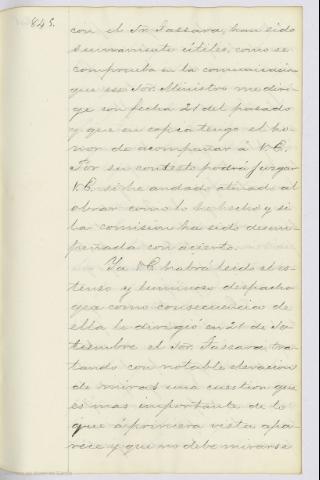 845.
con el Sor. Tassara, han sido
sumamente útiles, como se
comprueba en la comunicacion
que ese Sor. Ministro me diri-
ge con fecha 21 del pasado
y que en copia tengo el ho-
nor de acompañar á V.E.
Por su contesto podrá juzgar
V.E. si he andado atinado al
obrar como lo he hecho y si
la comision ha sido desem-
peñada con acierto.
Ya V.E. habrá leido el es-
tenso y luminoso despacho
que como consecuencia de
ella le dirigió en 21 de Se-
tiembre el Sor. Tassara tra-
tando con notable elevacion
de miras una cuestion que
és mas importante de lo
que á primera vista apa-
rece y que no debe mirarse